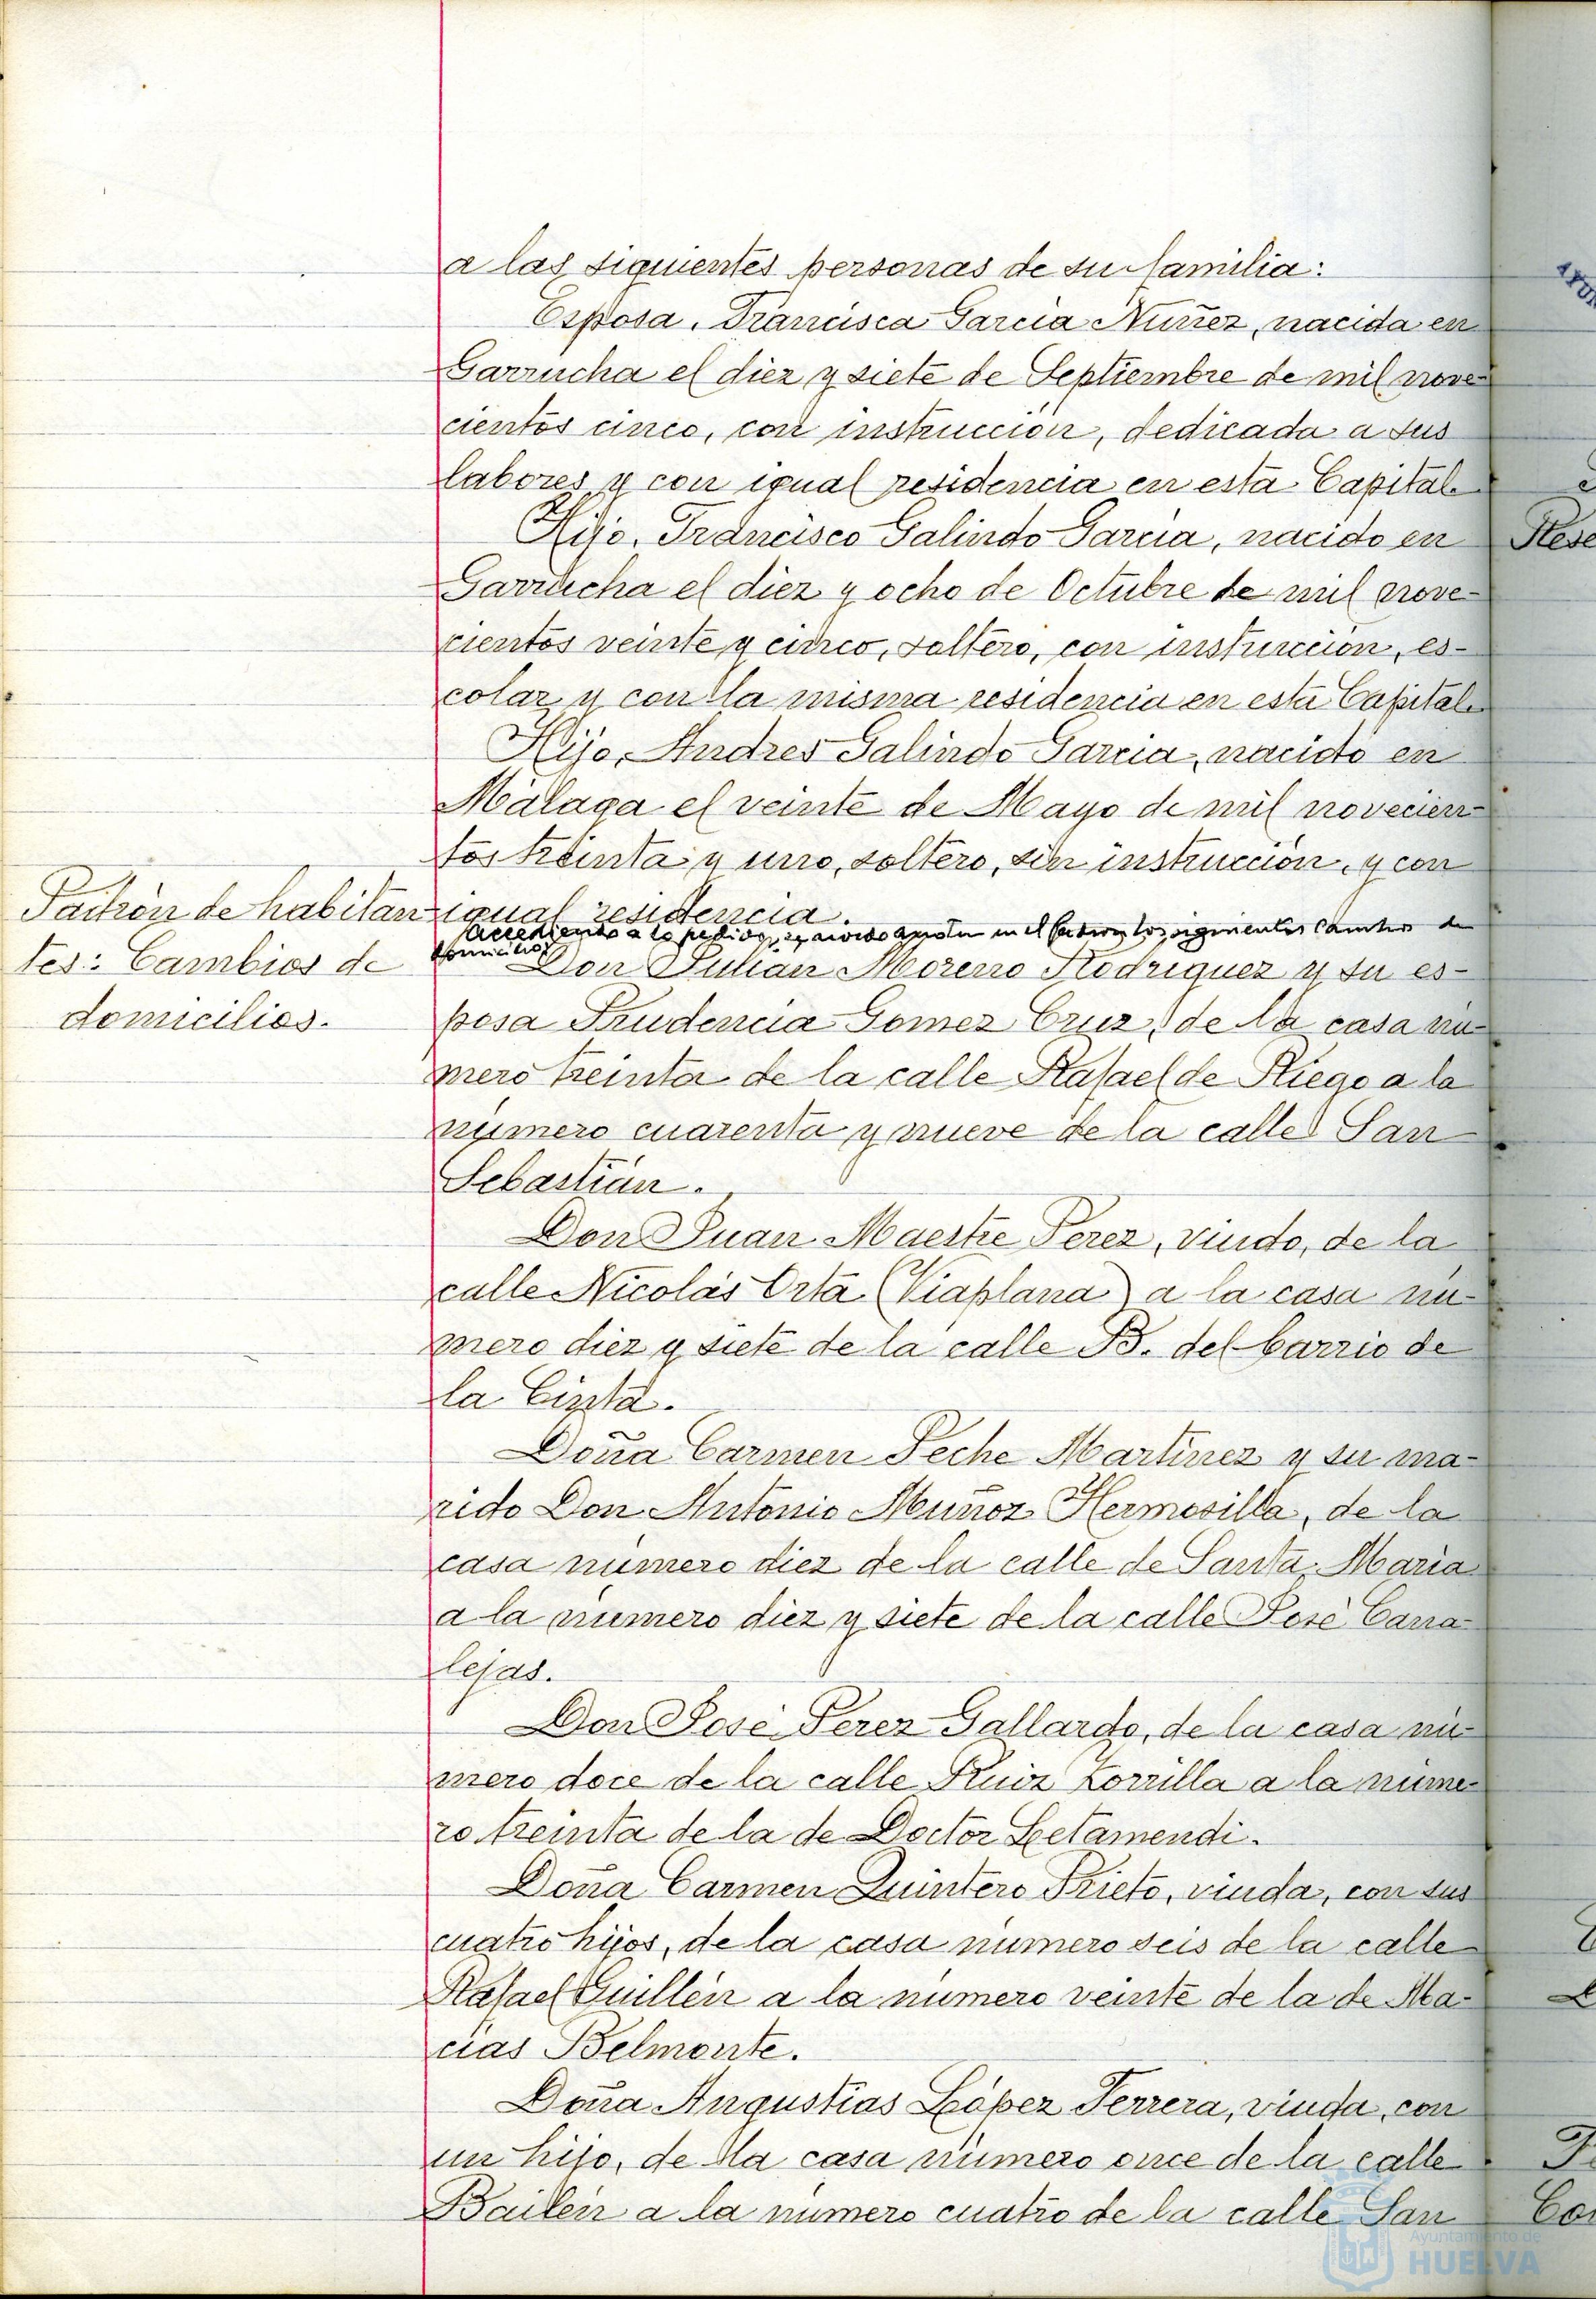 a las siguientes personas de su familia:
Esposa, Francisca Garcia Nuñez, nacida en
Garrucha el diez y siete de Septiembre de mil nove-
cientos cinco, con instruccion, dedicada a sus
labores y con igual residencia en esta Capital.
Hijo, Francisco Galindo Garcia, nacido en
Garrucha el diez y ocho de Octubre de mil nove-
cientos veinte y cinco, soltero, con insturccion, es-
colar y con la misma residencia en esta Capital.
Hijo, Andres Galindo Garcia, nacido en
Málaga el veinte de Mayo de mil novecien-
tos treinta y uno, soltero, sin instrucción, y con
igual residencia.
Padrón de habitan
tes: Cambios de
domicilios.
Accediendo a lo pedido, se acordó anotar en el los siguientes cambios de
domicilio:
Don Julian Moreno Rodriguez y su es-
posa Prudencia Gomez Cruz, de la casa nú-
mero treinta de la calle Rafael de Riego a la
número cuarenta y nueve de la calle San
Sebastián.
Don Juan Maestre Perez, viudo, de la
calle Nicolás Orta (Viaplana) a la casa nú-
mero diez y siete de la calle B. del barrio de
la Cinta.
Doña Carmen Peche Martinez y su ma-
rido Don Antonio Muñoz Hermosilla, de la
casa número diez de la calle de Santa Maria
a la número diez y siete de la calle José Cana-
lejas.
Don José Perez Gallardo, de la casa nú-
mero doce de la calle Ruiz Zorrilla a la núme-
ro treinta de la de Doctor Letamendi.
Doña Carmen Quintero Prieto, viuda, con sus
cuatro hijos, de la casa número seis de la calle
Rafael Guillén a la número veinte de la de Ma-
cias Belmonte.
Doña Angustias López Ferrera, viuda, con
un hijo, de la casa número once de la calle
Bailén a la número cuatro de la calle San
Ayuntamiento de
HUELVA